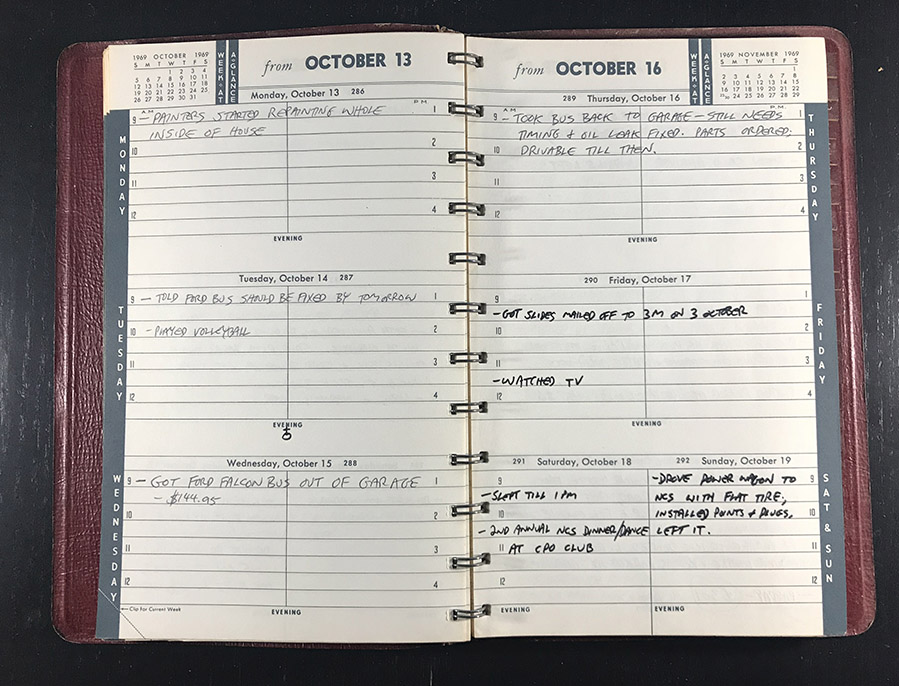 1969 OCTOBER 1969
S M T W T F S
1 2 3 4
5 6 7 8 9 10 11
12 13 14 15 16 17 18
19 20 21 22 23 24 25
26 27 28 29 30 31
WEEK-AT
A-GLANCE
from OCTOBER 13
Monday, October 13 286
MONDAY
A.M. P.M.
9 - PAINTERS STARTED REPAINTING WHOLE 1
INSIDE OF HOUSE
10 2
11 3
12 4
EVENING
Tuesday, October 14 287
TUESDAY
9 - TOLD FORD BUS SHOULD BE FIXED BY TOMORROW 1
10 - PLAYED VOLLEYBALL 2
11 3
12 4
EVENING
Wednesday, October 15 288
WEDNESDAY
9 - GOT FORD FALCON BUS OUT OF GARAGE 1
- $144.95
10 2
11 3
12 4
←Clip for Current Week
EVENING
from OCTOBER 16
WEEK-AT
A-GLANCE
1969 NOVEMBER 1969
S M T W T F S
1
2 3 4 5 6 7 8
9 10 11 12 13 14 15
16 17 18 19 20 21 22
23/30 24 25 26 27 28 29
289 Thursday, October 16
THURSDAY
A.M. P.M.
9 - TOOK BUS BACK TO GARAGE - STILL NEEDS 1
TIMING & OIL LEAK FIXED. PARTS ORDERED.
10 DRIVABLE TILL THEN. 2
11 3
12 4
EVENING
290 Friday, October 17
FRIDAY
9 1
- GOT SLIDES MAILED OFF TO 3M ON 3 OCTOBER
10 2
11 3
- WATCHED TV
12 4
EVENING
291 Saturday, October 18
9
- SLEPT TILL 1 PM
10
- 2ND ANNUAL NCS DINNER/DANCE
11 AT CPO CLUB
12
EVENING
292 Sunday, October 19
SAT & SUN
- DROVE POWER WAGON TO 9
NCS WITH FLAT TIRE,
INSTALLED POINTS & PLUGS, 10
LEFT IT.
11
12
EVENING